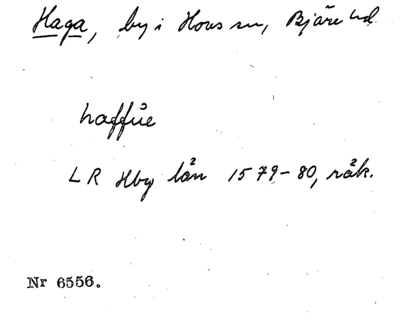 Haga, by i Hovs sn, Bjäre hd
haffúe
LR Hbg län 1579-80, räk.
Nr 6556.